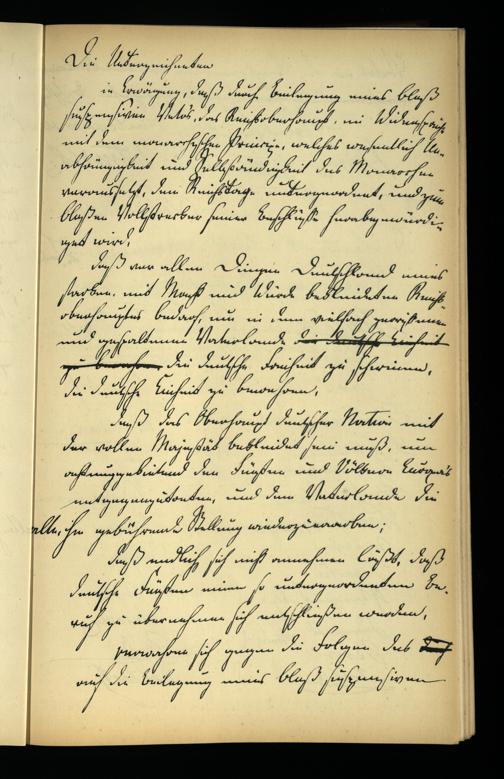 Die Unterzeichneten
in Erwägung, daß durch Beilegung eines bloß
suspensiven Vetos, das Reichsoberhaupt, im Widerspruche
mit dem monarchischen Princip, welches wesentlich Un-
abhängigkeit und Selbständigkeit des Monarchen
voraussetzt, dem Reichstage untergeordnet, und zum
bloßen Vollstrecker seiner Beschlüsse herabgewürdi-
get wird;
daß vor allen Dingen Deutschland eines
starken, mit Macht und Würde bekleideten Reichs-
oberhauptes bedarf, um in dem vielfach zerrissenen
und gespaltenen Vaterlande die deutsche Einheit
zu bewahren die deutsche Freiheit zu schirmen,
die deutsche Einheit zu bewahren;
daß das Oberhaupt deutscher Nation mit
der vollen Majestät bekleidet sein muß, um
achtunggebietend den Fürsten und Völkern Europa's
entgegenzutreten, und dem Vaterlande die
alte, ihm gebührende Stellung wiederzuerwerben;
daß endlich sich nicht annehmen läßt, daß
deutsche Fürsten einen so untergeordneten Be-
ruf zu übernehmen sich entschließen werden,
verwahren sich gegen die Folgen des
auf die Beilegung eines bloß suspensiven